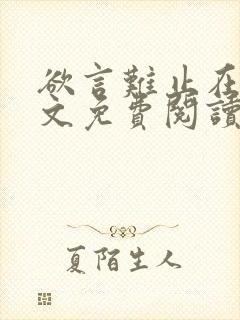 欲言難止在
文免費閱讀
夏陌生人